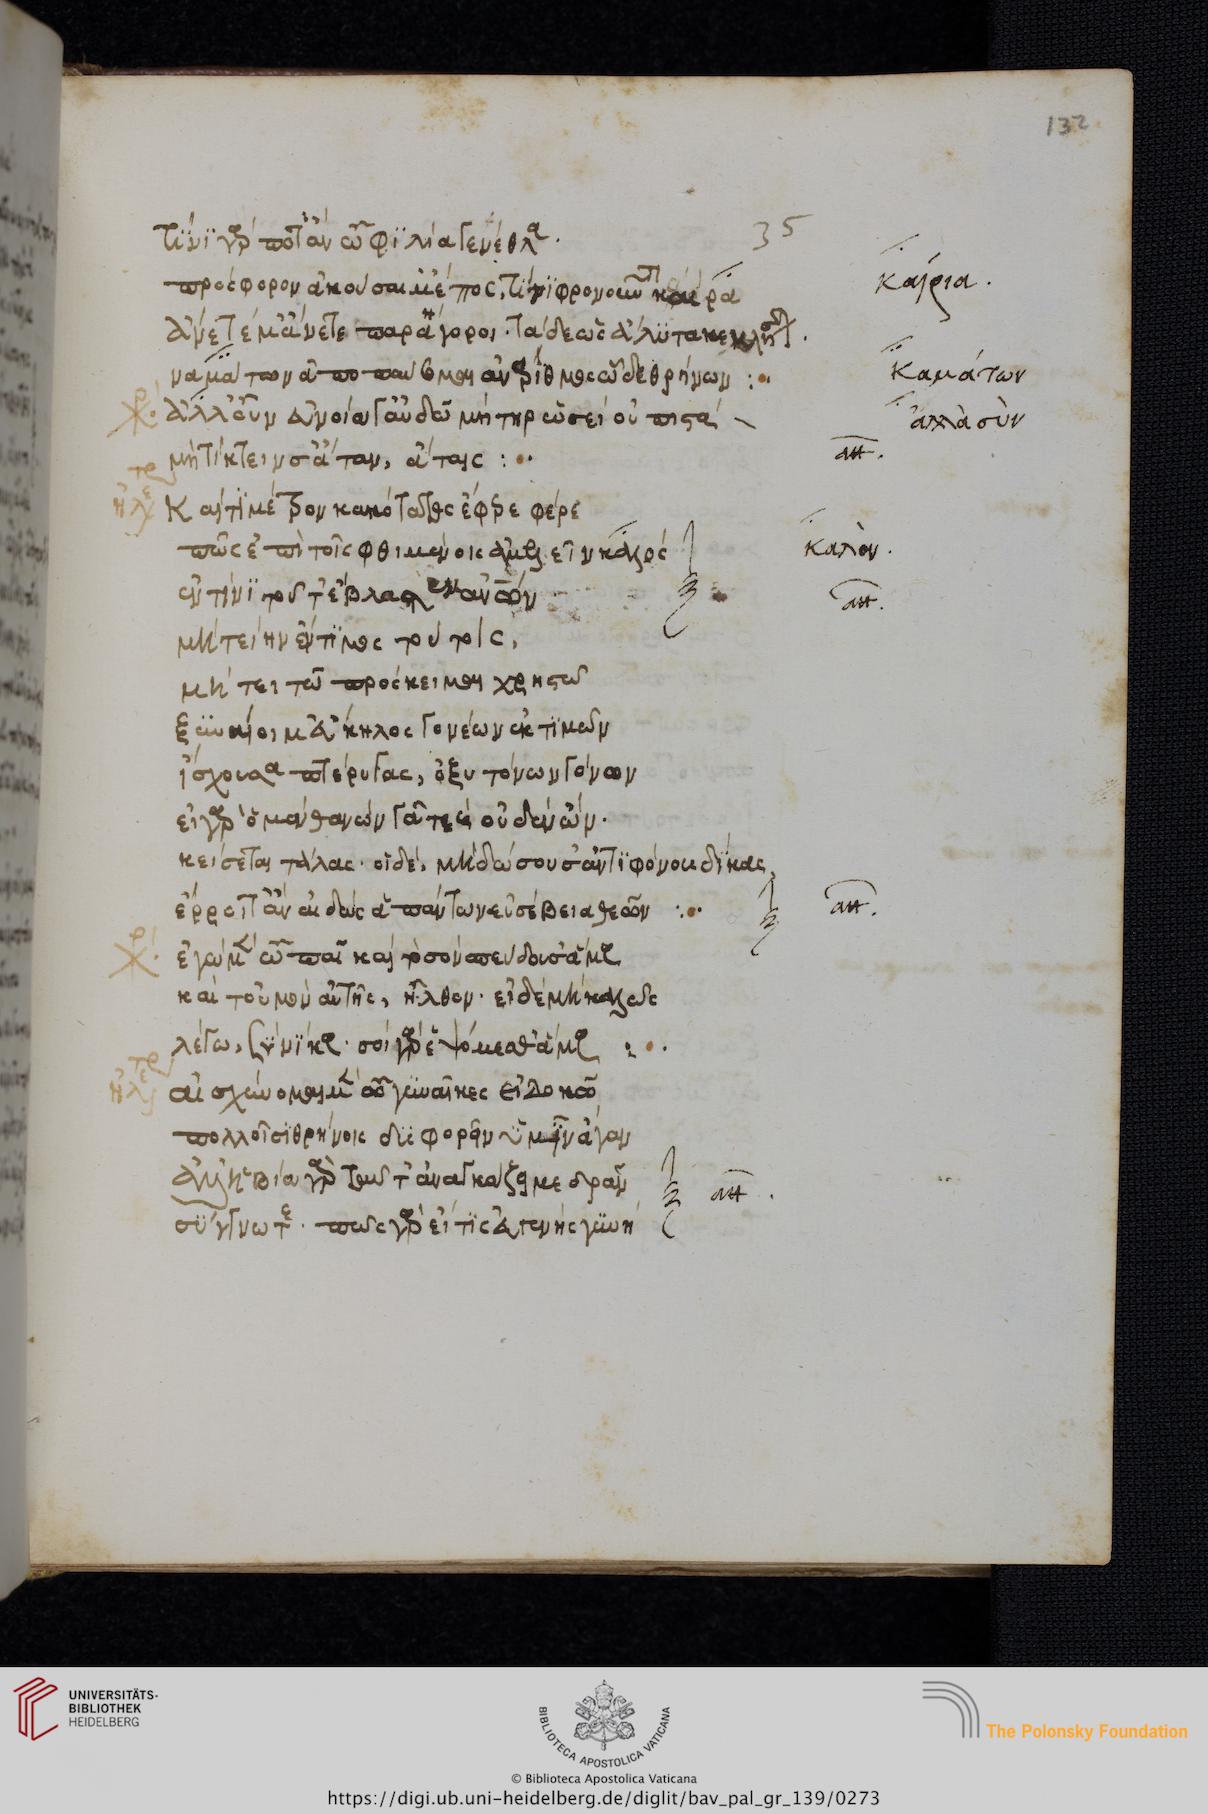 132
35
τίνι γάρ ποτ' ἂν ὦ φιλία γενέθλα.
πρόσφορον ἀκούσαιμ' ἔπος, τίνι φρονοῦντι καίρια
καίρια.
ἄνετέ μ' ἄνετε παράγοροι. τάδε ὡς ἄλυτα κεκλήσεται.
καμάτων ἀποπαύσομαι ἀνάριθμος ὧδε θρήνων :
καμάτων
χο. ἀλλ' οὖν εὐνοία γ' αὐδῶ μήτηρ ὡσεί οὐ πιστά
ἀλλὰ σὺν
μὴ τίκτειν σ' ἄταν, ἄταις :
ατ.
ἠλέκτρ
καὶ τί μέτρον κακότατος ἔφυ φέρε
πῶς ἐπὶ τοῖς φθιμένοις ἀμελεῖν καλός
καλὸν.
ἐν τίνι τοῦτ' ἔβλαστεν ἀνθρώπων
ατ.
μήτ' εἴην ἔντιμος τούτοις,
μήτ' εἴ τῳ πρόσκειμαι χρηστῷ
ξυνναίοιμ' εὔκηλος γονέων ἐκτίμων
ἴσχουσα πτέρυγας, ὀξυτόνων γόνων
εἰ γὰρ ὁ μὲν θανὼν γᾶ τε καὶ οὐδὲν ὤν.
κείσεται τάλας. οἱ δὲ, μὴ δώσουσ' ἀντιφόνους δίκας,
ἔρροι τ' ἂν αἰδὼς ἁπάντων εὐσέβεια θεῶν :
ατ.
χο. ἐγὼ μὲν ὦ παῖ καὶ τὸ σὸν σπεύδουσ' ἅμα
καὶ τοὐμὸν αὐτῆς, ἦλθον. εἰ δὲ μὴ καλῶς
λέγω, σὺ νίκα. σοὶ γὰρ ἑψόμεσθ' ἅμα :
ἠλέκτρ
αἰσχύνομαι μὲν ὦ γυναῖκες εἰ δοκῶ
πολλοῖσι θρήνοις δυσφορεῖν ὑμῖν ἄγαν
ἀλλ' ἡ βία γὰρ ταῦτ' ἀναγκάζει με δρᾶν
ατ.
σύγγνωτε. πῶς γὰρ εἴ τις εὐγενὴς γυνή
UNIVERSITÄTS-
BIBLIOTHEK
HEIDELBERG
BIBLIOTECA APOSTOLICA VATICANA
The Polonsky Foundation
© Biblioteca Apostolica Vaticana
https://digi.ub.uni-heidelberg.de/diglit/bav_pal_gr_139/0273